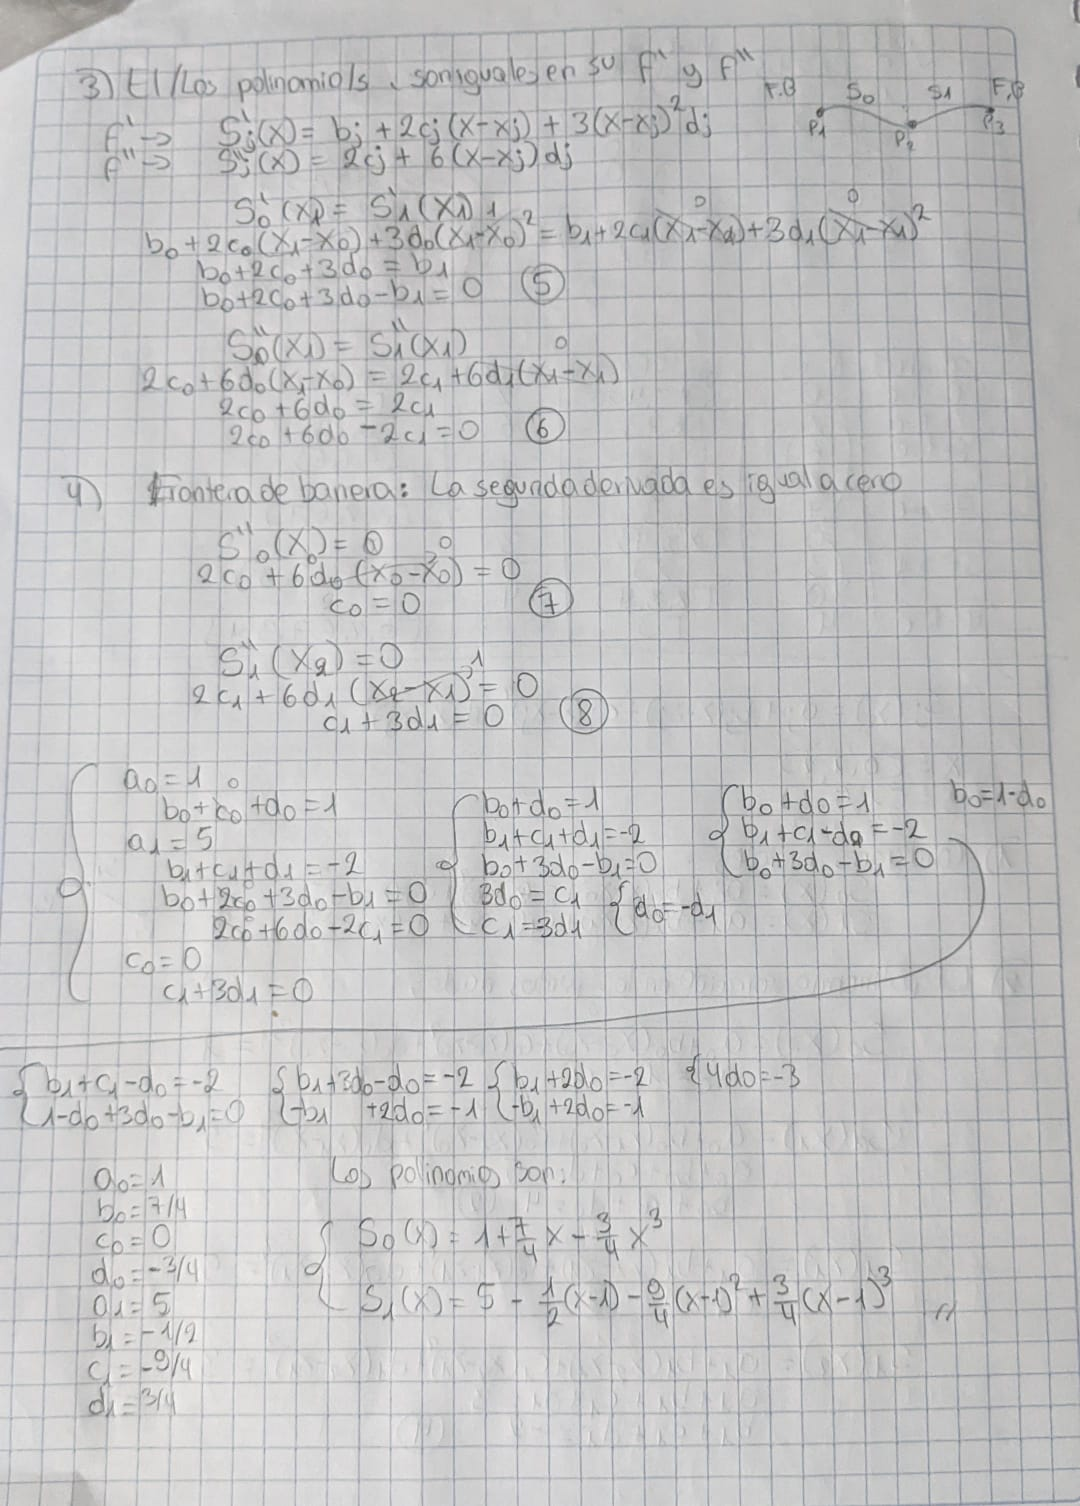 3) El/Los polinomio/s, son iguales en su f' y f''
F.B S₀ S₁ F.B
P₁ P₂ P₃
f' → Sj'(x) = bj + 2cj(x-xj) + 3(x-xj)²dj
f'' → Sj''(x) = 2cj + 6(x-xj)dj
S₀'(x₁) = S₁'(x₁)
b₀ + 2c₀(x₁-x₀) + 3d₀(x₁-x₀)² = b₁ + 2c₁(x₁-x₁) + 3d₁(x₁-x₁)²
b₀+2c₀+3d₀ = b₁
b₀+2c₀+3d₀-b₁ = 0 (5)
S₀''(x₁) = S₁''(x₁)
2c₀+6d₀(x₁-x₀) = 2c₁+6d₁(x₁-x₁)
2c₀+6d₀ = 2c₁
2c₀+6d₀-2c₁ = 0 (6)
4) Frontera de banera: La segunda derivada es igual a cero
S''₀(x₀) = 0
2c₀ + 6d₀(x₀-x₀) = 0
c₀ = 0 (7)
S₁''(x₂) = 0
2c₁ + 6d₁(x₂-x₁) = 0
c₁ + 3d₁ = 0 (8)
a₀=1
b₀+c₀+d₀=1
a₁=5
b₁+c₁+d₁=-2
b₀+2c₀+3d₀-b₁=0
2c₀+6d₀-2c₁=0
c₀=0
c₁+3d₁=0
b₀+d₀=1
b₁+c₁+d₁=-2
b₀+3d₀-b₁=0
3d₀=c₁
c₁=-3d₁
{d₀=-d₁
b₀+d₀=1
b₁+c₁-d₀=-2
b₀+3d₀-b₁=0
b₀=1-d₀
{b₁+c₁-d₀=-2 {b₁+3d₀-d₀=-2 {b₁+2d₀=-2 {4d₀=-3
1-d₀+3d₀-b₁=0 -b₁ +2d₀=-1 -b₁+2d₀=-1
a₀=1
b₀=7/4
c₀=0
d₀=-3/4
a₁=5
b₁=-1/2
c₁=-9/4
d₁=3/4
Los polinomios son:
S₀(x) = 1+7/4 x - 3/4 x³
S₁(x) = 5 - 1/2(x-1) - 9/4(x-1)² + 3/4(x-1)³ //